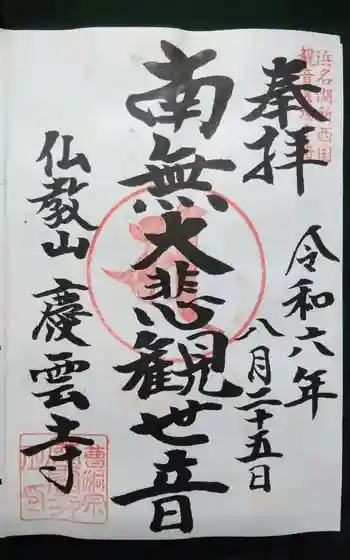 浜名湖新西国
奉拝
令和六年
八月二十五日
南無大悲観世音
仏教山慶雲寺
曹洞宗